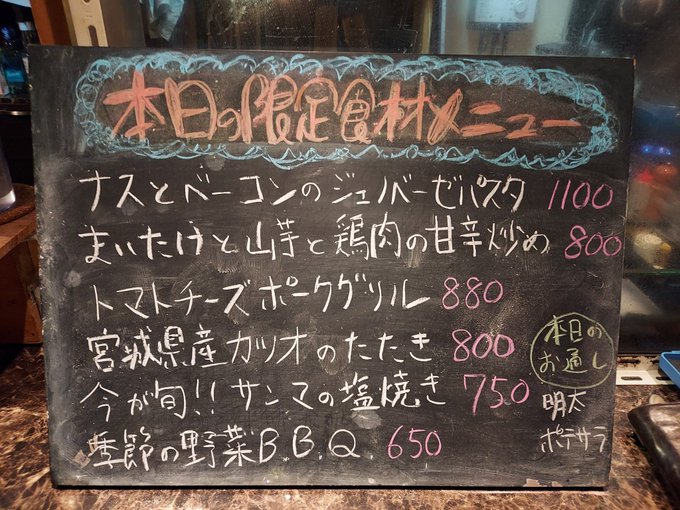 本日の限定食材メニュー
ナスとベーコンのジェノバーゼパスタ 1100
まいたけと山芋と鶏肉の甘辛炒め 800
トマトチーズポークグリル 880
宮城県産カツオのたたき 800
今が旬!! サンマの塩焼き 750
季節の野菜B.B.Q. 650
本日の
お通し
明太
ポテサラ